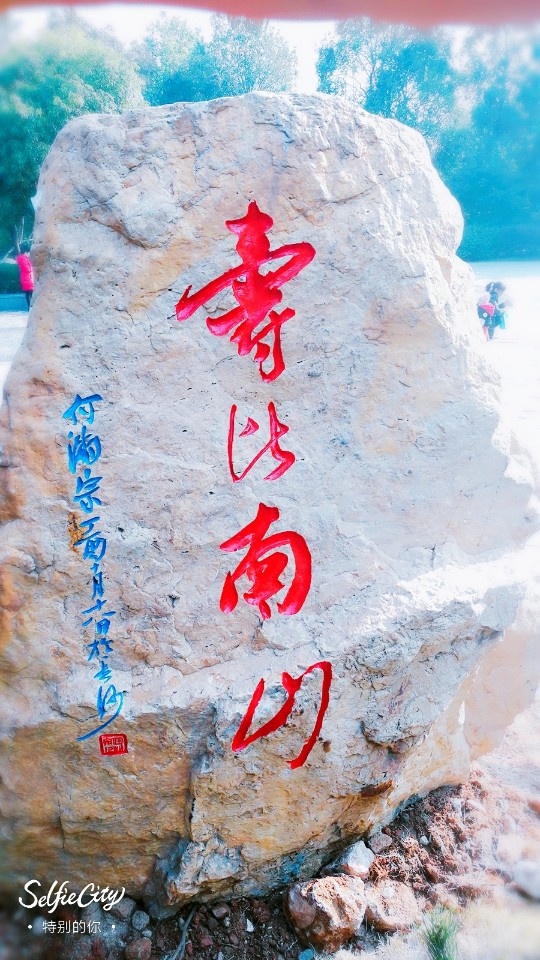 寿比南山
何满宗丁酉十月十六日於长沙
SelfieCity
特别的你